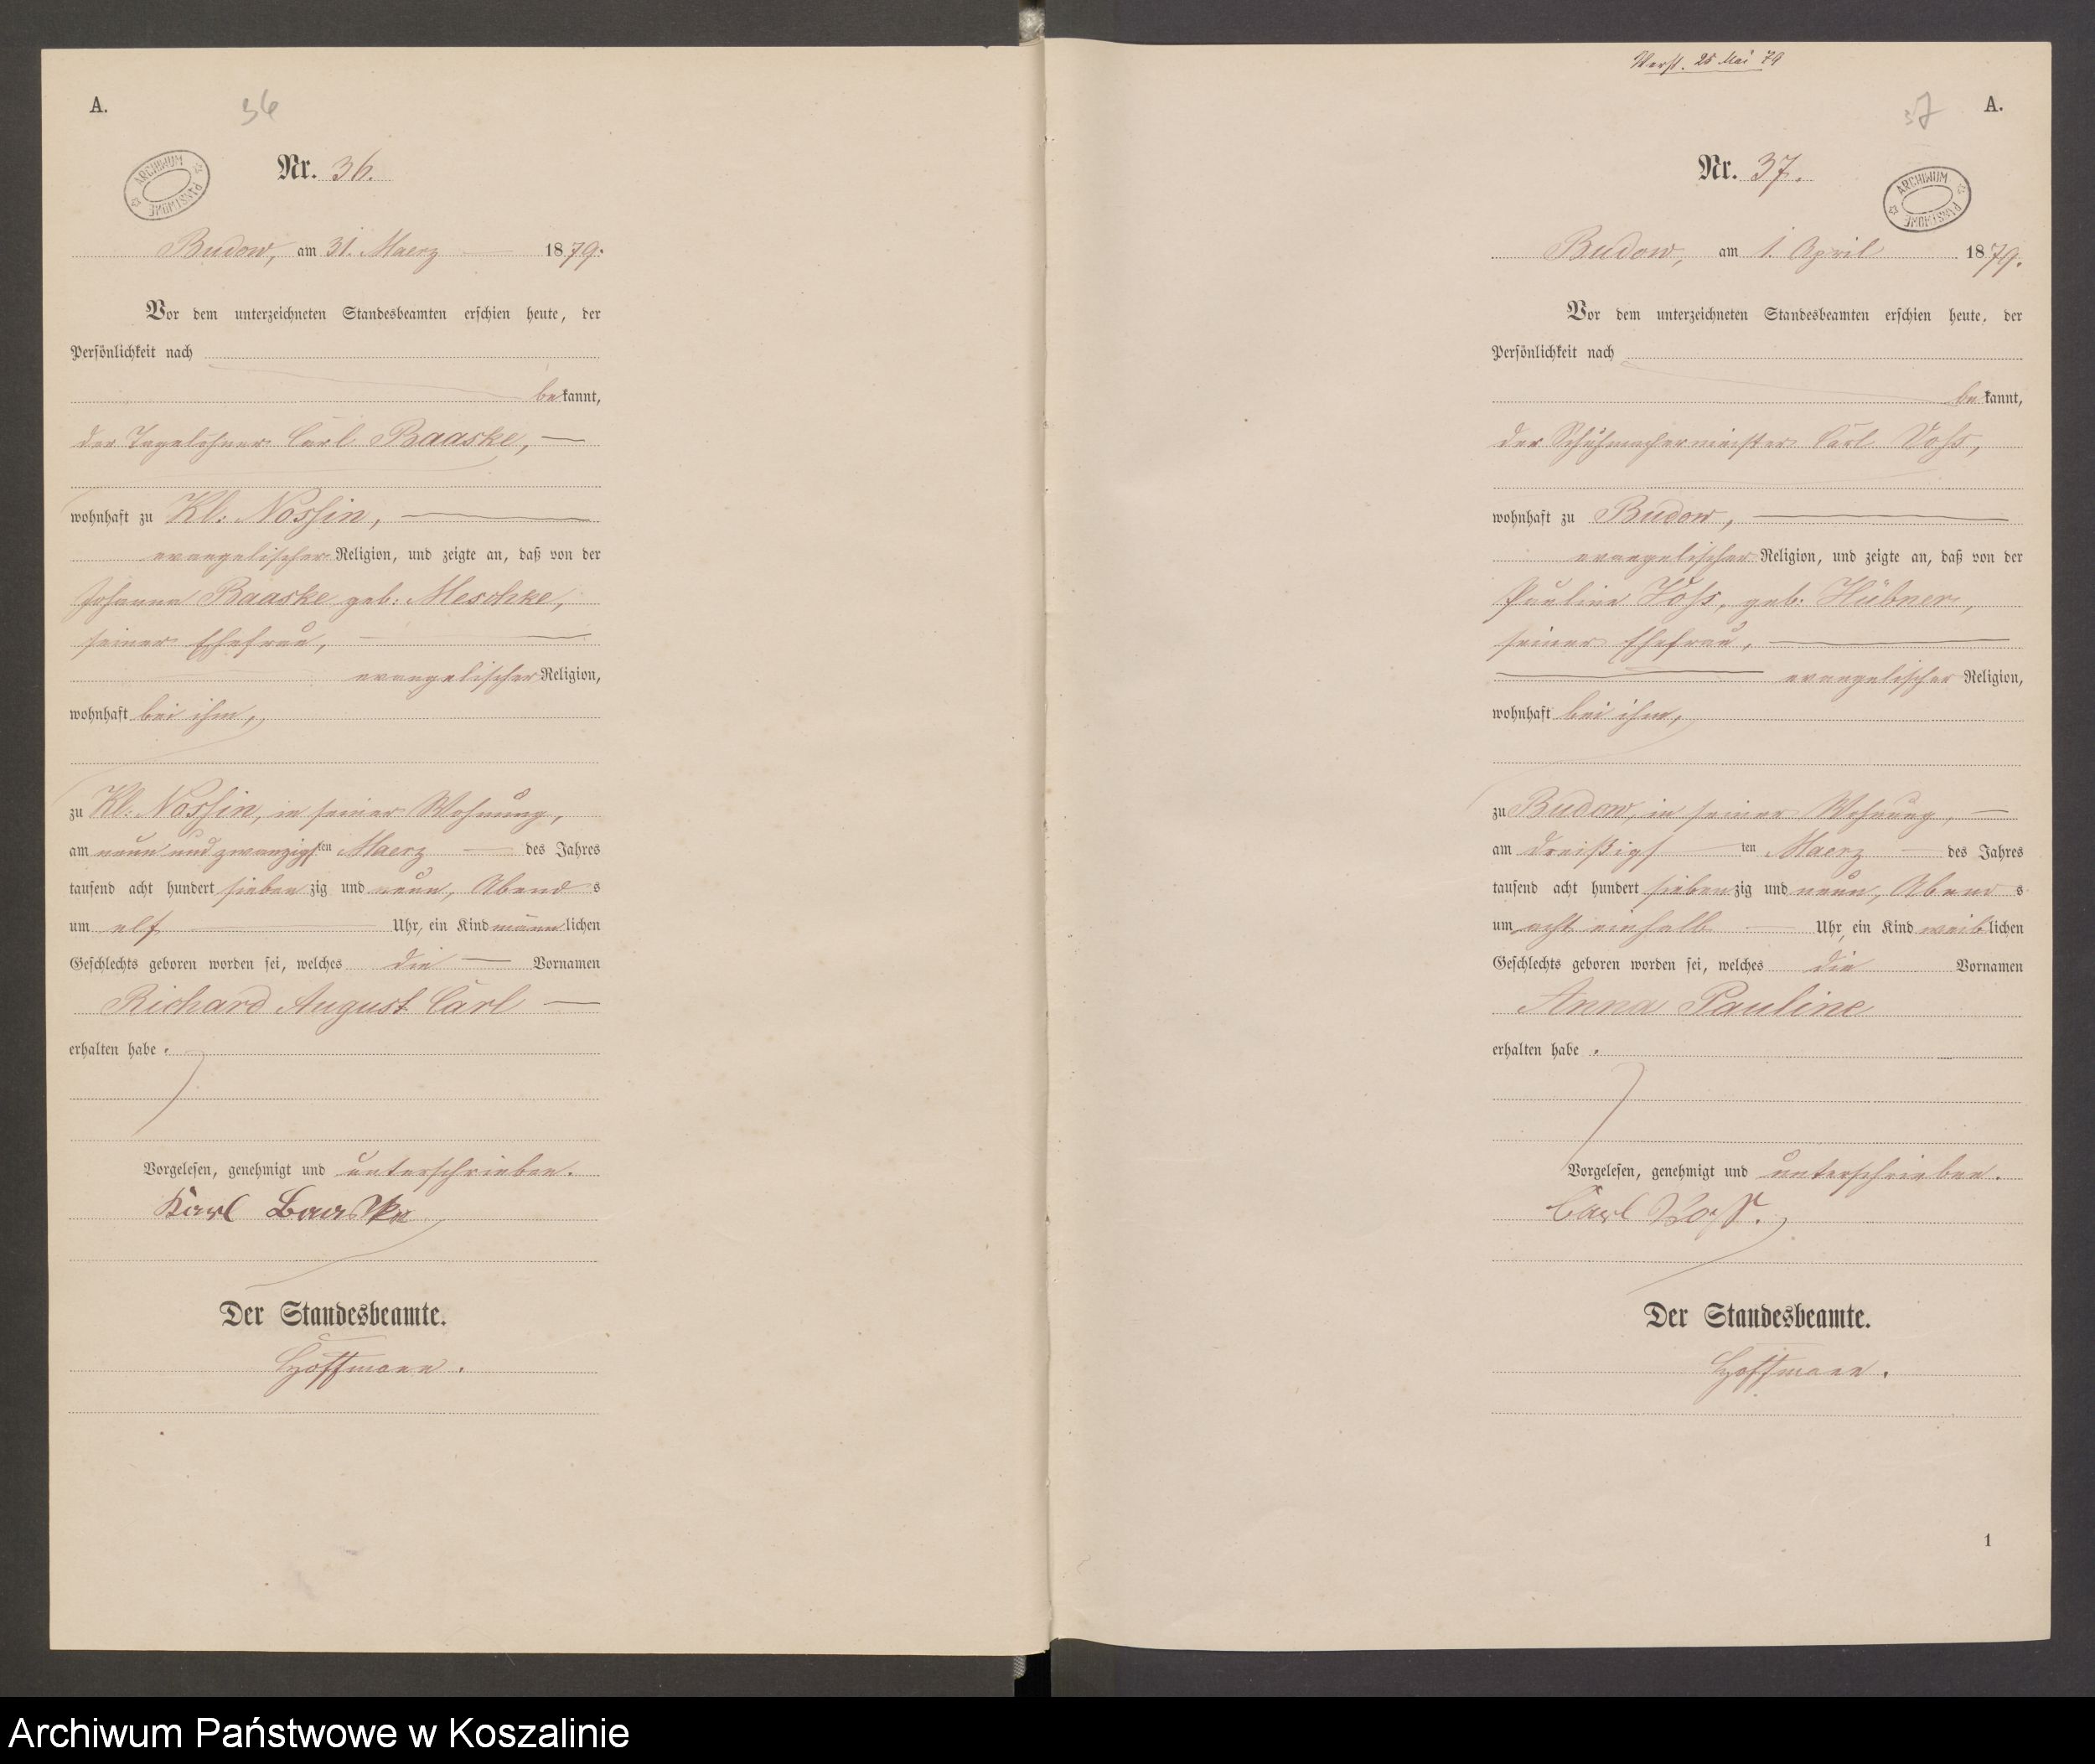 A.
36
Nr. 36.
ARCHIWUM PAŃSTWOWE
Budow, am 31. Maerz 1879.
Vor dem unterzeichneten Standesbeamten erschien heute, der
Persönlichkeit nach
bekannt,
der Tagelöhner Carl Baaske,
wohnhaft zu Kl. Nossin,
evangelischer Religion, und zeigte an, daß von der
Johanne Baaske geb. Meschke,
seiner Ehefrau,
evangelischer Religion,
wohnhaft bei ihm,
zu Kl. Nossin, in seiner Wohnung,
am neun und zwanzigsten Maerz des Jahres
tausend acht hundert siebenzig und neun, Abends
um elf Uhr, ein Kind männlichen
Geschlechts geboren worden sei, welches die Vornamen
Richard August Carl
erhalten habe.
Vorgelesen, genehmigt und unterschrieben.
Karl Baaske
Der Standesbeamte.
Hoffmann.
Verst. 25 Mai 79
37
A.
Nr. 37.
ARCHIWUM PAŃSTWOWE
Budow, am 1. April 1879.
Vor dem unterzeichneten Standesbeamten erschien heute, der
Persönlichkeit nach
bekannt,
der Schuhmachermeister Carl Voss,
wohnhaft zu Budow,
evangelischer Religion, und zeigte an, daß von der
Pauline Voss, geb. Hübner,
seiner Ehefrau,
evangelischer Religion,
wohnhaft bei ihm,
zu Budow, in seiner Wohnung,
am dreißigsten Maerz des Jahres
tausend acht hundert siebenzig und neun, Abends
um acht einhalb Uhr, ein Kind weiblichen
Geschlechts geboren worden sei, welches die Vornamen
Anna Pauline
erhalten habe.
Vorgelesen, genehmigt und unterschrieben.
Carl Voss.
Der Standesbeamte.
Hoffmann.
1
Archiwum Państwowe w Koszalinie